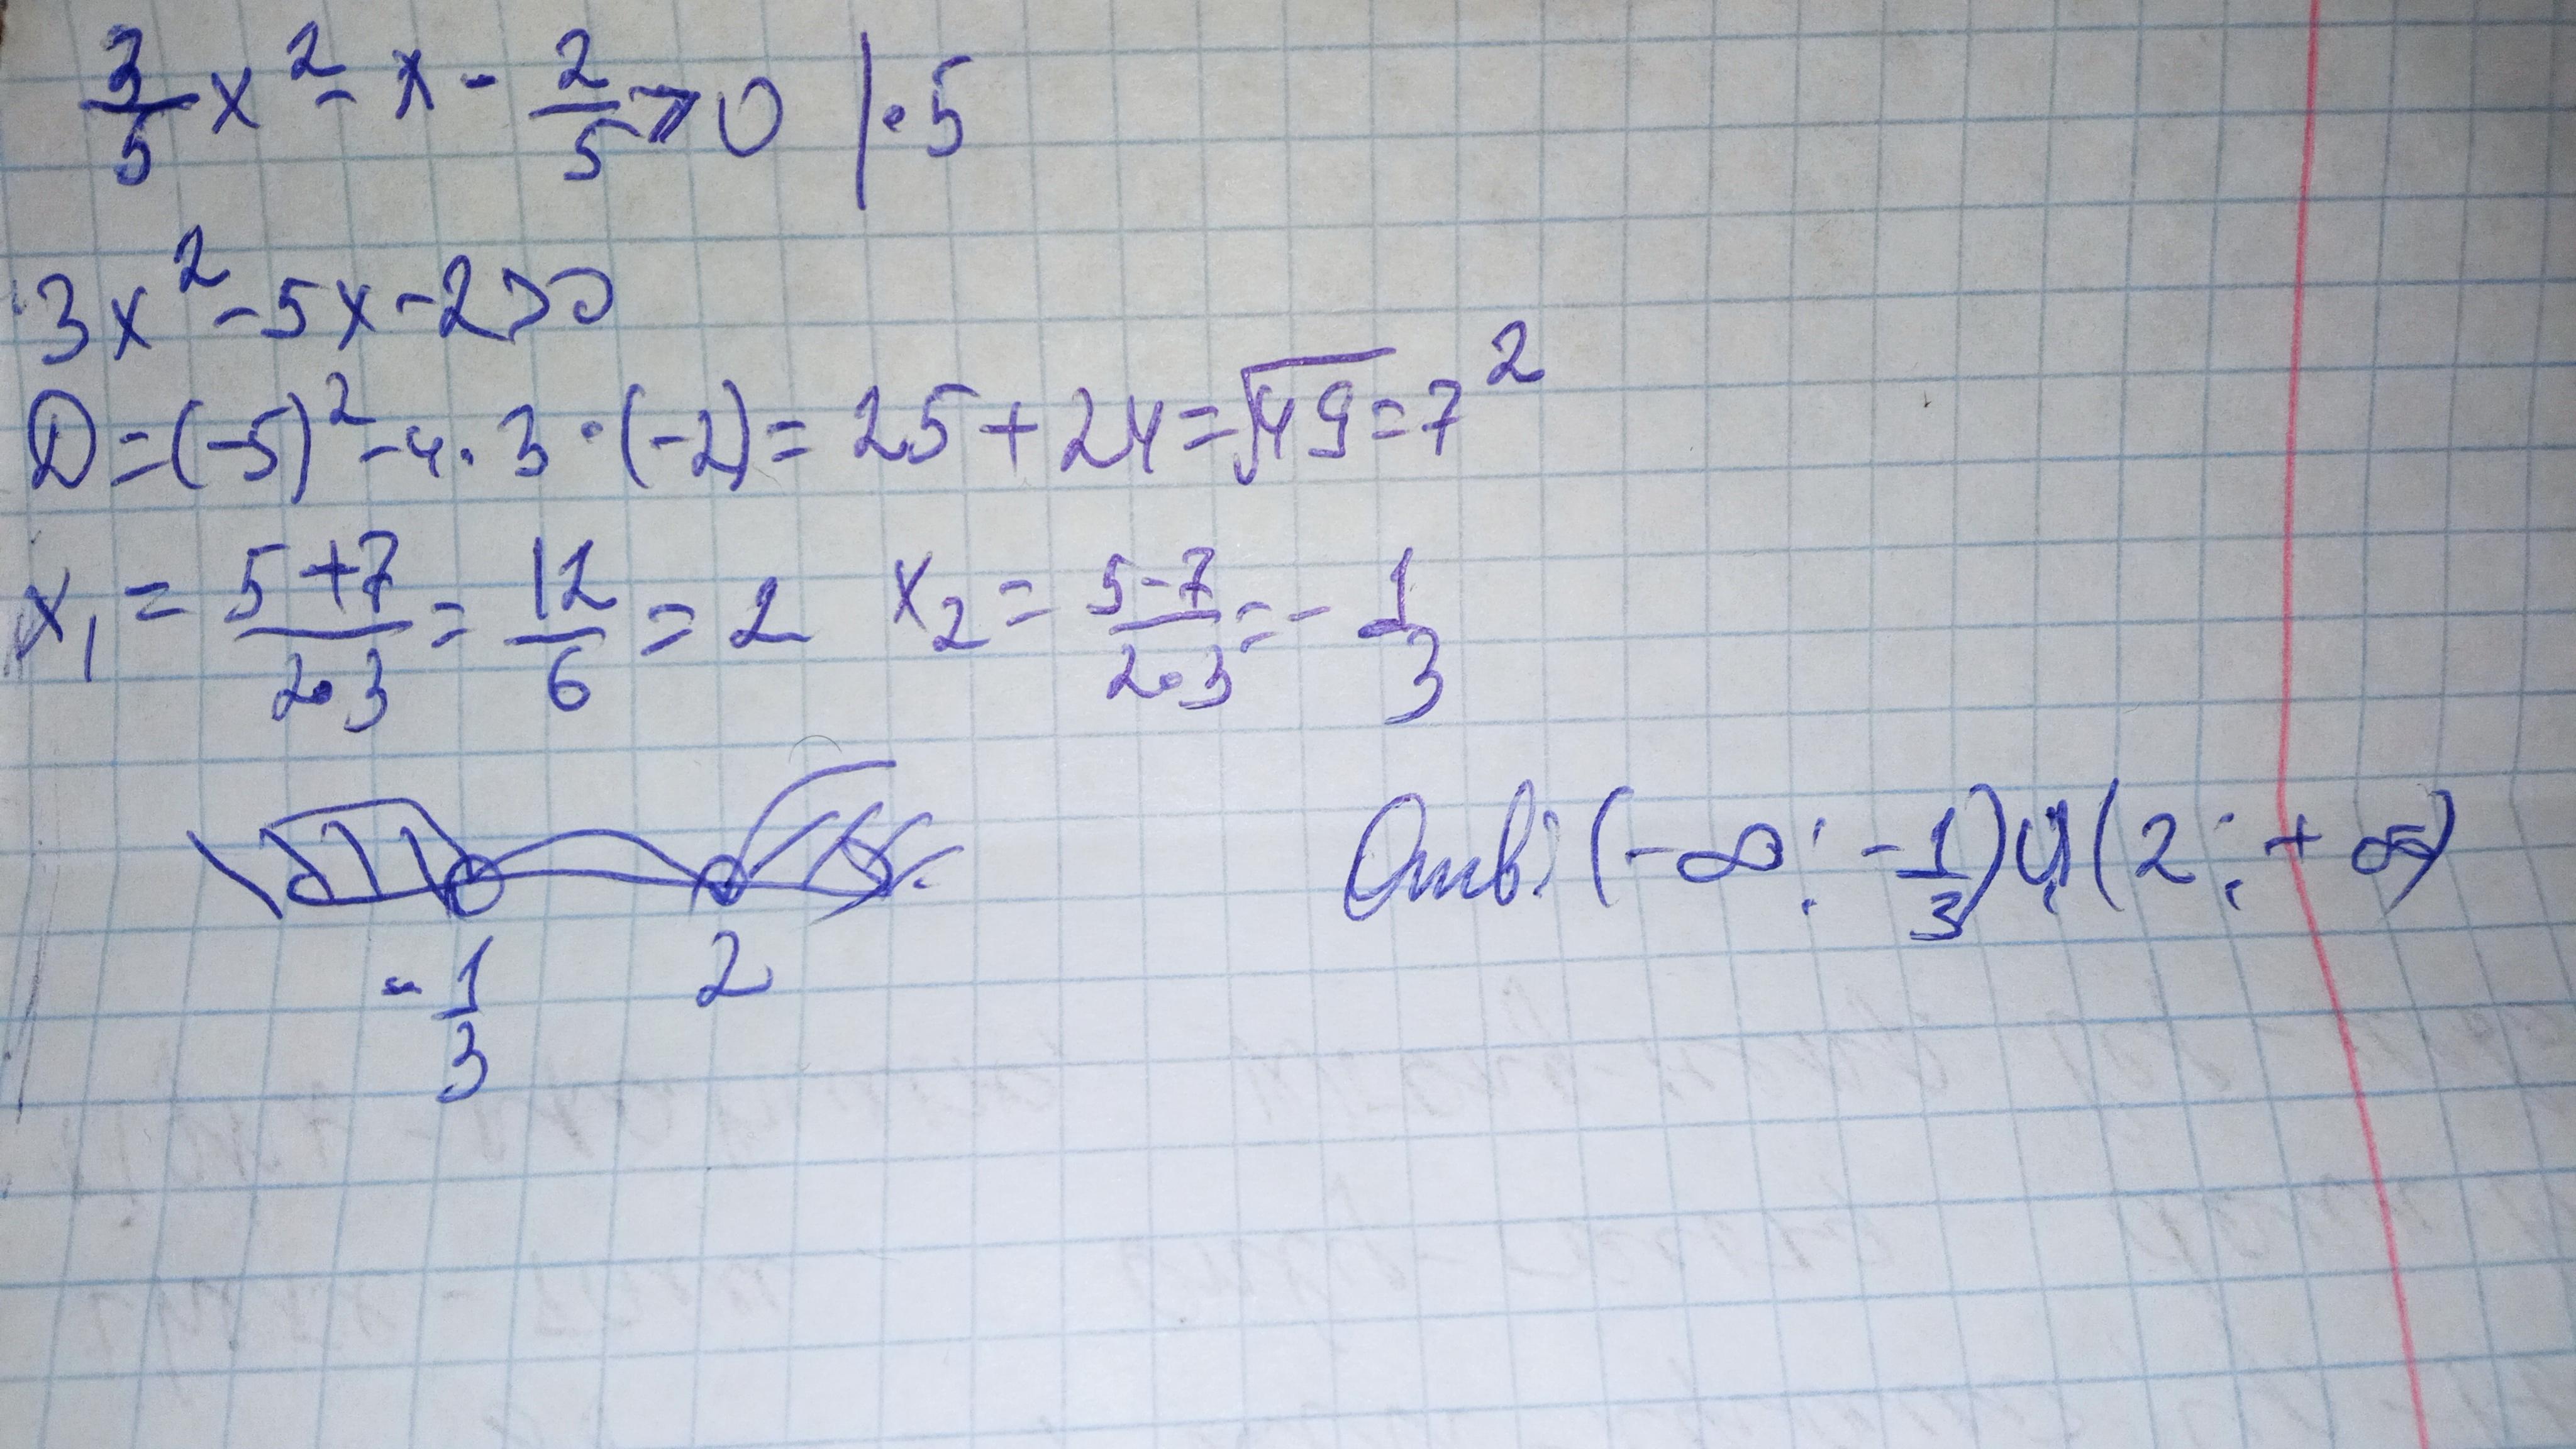 3/5 x² - x - 2/5 > 0 | · 5
3x² - 5x - 2 > 0
D = (-5)² - 4 · 3 · (-2) = 25 + 24 = √49 = 7²
x₁ = (5+7)/(2·3) = 12/6 = 2 x₂ = (5-7)/(2·3) = - 1/3
- 1/3 2
Отв: (-∞; - 1/3) U (2; +∞)